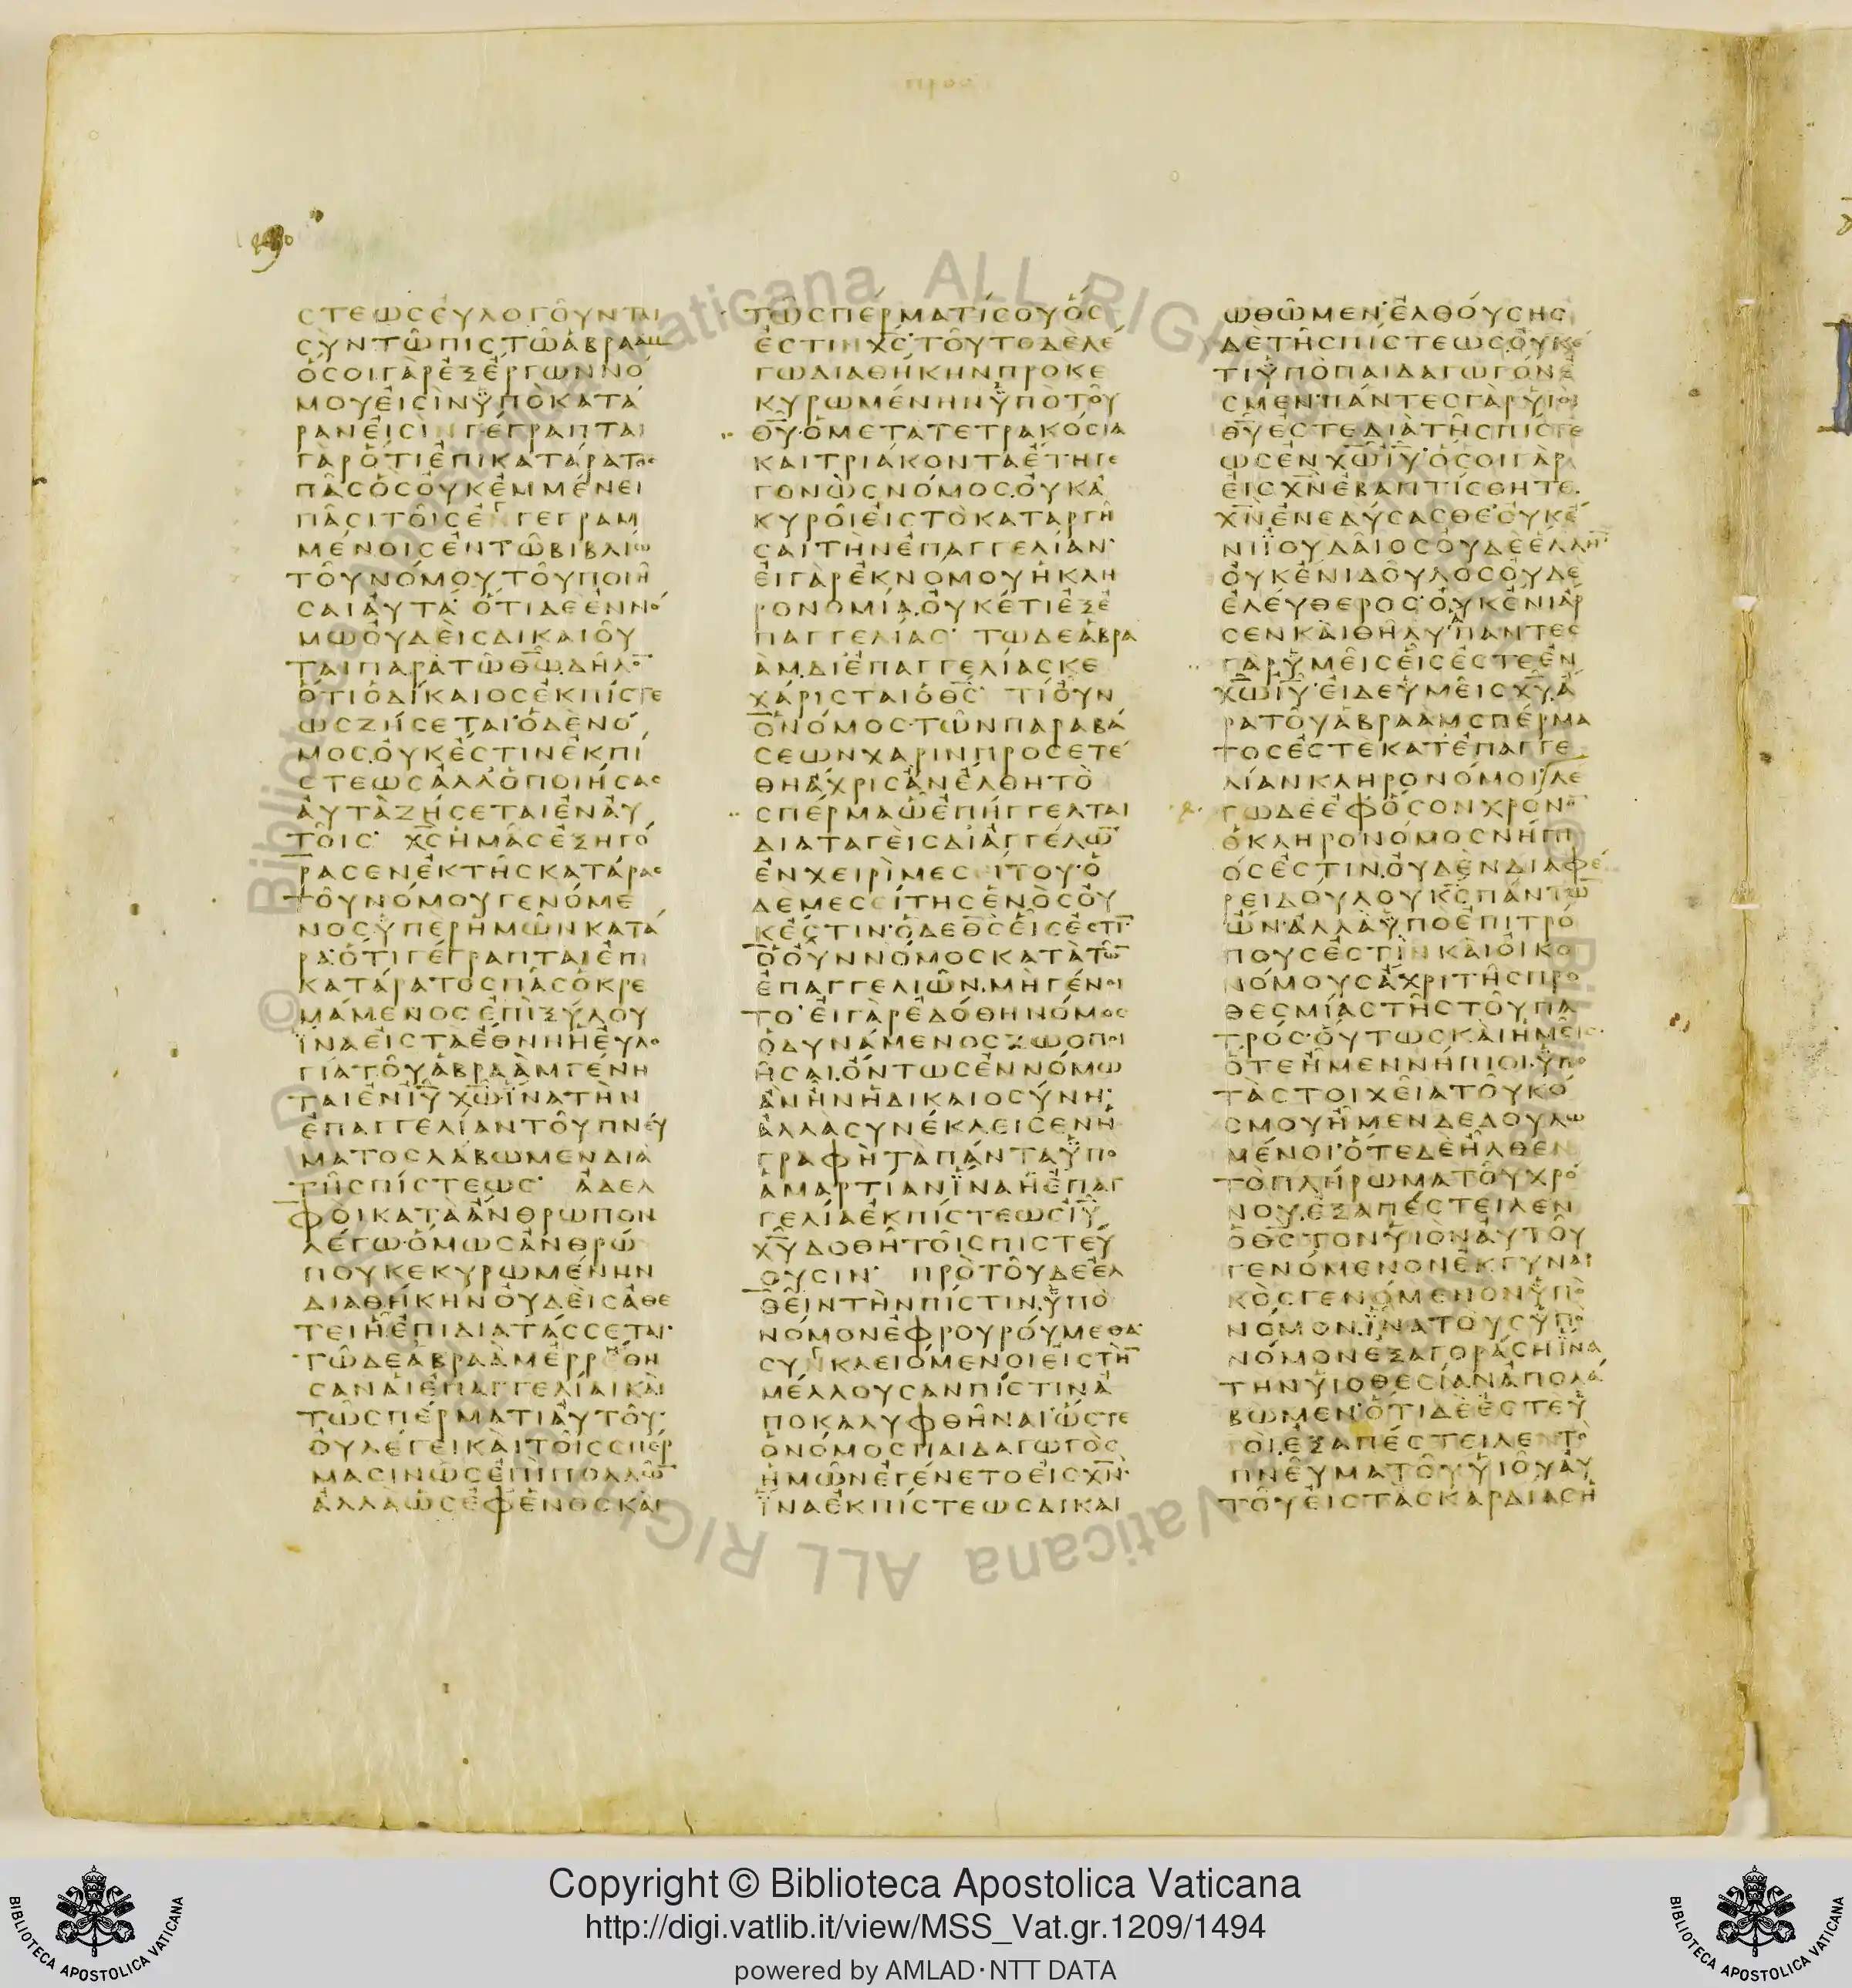 ϲτεωϲευλογουνται
ϲυντωπιϲτωαβρααμ
οϲοιγαρεξεργωννο
μουειϲινϋποκατα
ρανειϲινγεγραπται
γαροτιεπικαταρατοϲ
παϲοϲουκεμμενει
παϲιτοιϲενγεγραμ
μενοιϲεντωβιβλιω
τουνομουτουποιη
ϲαιαυτα· οτιδεεννο
μωουδειϲδικαιου
ταιπαρατωθω̅δηλο̅
οτιοδικαιοϲεκπιϲτε
ωϲζηϲεται·οδενο
μοϲουκεϲτινεκπι
ϲτεωϲαλλοποιηϲαϲ
αυταζηϲεταιεναυ
τοιϲ· χϲ̅ημαϲεξηγο
ραϲενεκτηϲκαταραϲ
τουνομουγενομε
νοϲϋπερημωνκατα
ρα·οτιγεγραπταιεπι
καταρατοϲπαϲοκρε
μαμενοϲεπιξυλου
ϊναειϲταεθνηηευλο
γιατουαβρααμγενη
ταιενιυ̅χω̅·ϊνατην
επαγγελιαντουπνευ
ματοϲλαβωμενδια
τηϲπιϲτεωϲ· αδελ
φοικαταανθρωπον
λεγω·ομωϲανθρω
πουκεκυρωμενην
διαθηκηνουδειϲαθε
τειηεπιδιαταϲϲεται·
τωδεαβρααμερρεθη
ϲαναιεπαγγελιαικαι
τωϲπερματιαυτου·
ουλεγεικαιτοιϲϲπερ
μαϲινωϲεπιπολλω̅
αλλαωϲεφενοϲκαι
τωϲπερματιϲουοϲ
εϲτινχϲ̅·τουτοδελε
γωδιαθηκηνπροκε
κυρωμενηνϋποτου
θυ̅·ομετατετρακοϲια
καιτριακονταετηγε
γονωϲνομοϲουκα
κυροιειϲτοκαταργη
ϲαιτηνεπαγγελιαν·
ειγαρεκνομουηκλη
ρονομια·ουκετιεξε
παγγελιαϲ· τωδεαβρα
αμδιεπαγγελιαϲκε
χαριϲταιοθϲ̅· τιουν
ονομοϲ·τωνπαραβα
ϲεωνχαρινπροϲετε
θηαχριϲανελθητο
ϲπερμαωεπηγγελται
διαταγειϲδιαγγελω̅
ενχειριμεϲειτου·ο
δεμεϲειτηϲενοϲου
κεϲτιν·οδεθϲ̅ειϲεϲτι̅·
οουννομοϲκατατω̅
επαγγελιων·μηγενοι
το· ειγαρεδοθηνομοϲ
οδυναμενοϲζωοποι
ηϲαι·οντωϲεννομω
ανηνηδικαιοϲυνη·
αλλαϲυνεκλειϲενη
γραφηταπανταϋπο
αμαρτιανϊναηεπαγ
γελιαεκπιϲτεωϲιυ̅
χυ̅δοθητοιϲπιϲτευ
ουϲιν· προτουδεελ
θειντηνπιϲτινϋπο
νομονεφρουρουμεθα·
ϲυγκλειομενοιειϲτη̅
μελλουϲανπιϲτινα
ποκαλυφθηναι·ωϲτε
ονομοϲπαιδαγωγοϲ
ημωνεγενετοειϲχν̅·
ϊναεκπιϲτεωϲδικαι
ωθωμεν·ελθουϲηϲ
δετηϲπιϲτεωϲουκε
τιϋποπαιδαγωγονε
ϲμεν·παντεϲγαρυιοι
θυ̅εϲτεδιατηϲπιϲτε
ωϲενχω̅ιυ̅·οϲοιγαρ
ειϲχν̅εβαπτιϲθητε
χν̅ενεδυϲαϲθε·ουκε
νιϊουδαιοϲουδεελλη̅·
ουκενιδουλοϲουδε
ελευθεροϲ·ουκενιαρ
ϲενκαιθηλυ·παντεϲ
γαρϋμειϲειϲεϲτεεν
χω̅ιυ̅·ειδεϋμειϲχυ̅α
ρατουαβρααμϲπερμα
τοϲεϲτεκατεπαγγε
λιανκληρονομοι·λε
γωδεεφοϲονχρονο̅
οκληρονομοϲνηπι
οϲεϲτιν·ουδενδιαφε
ρειδουλουκϲ̅παντω̅
ων·αλλαϋποεπιτρο
πουϲεϲτινκαιοικο
νομουϲαχριτηϲπρο
θεϲμιαϲτηϲτουπα
τροϲ·ουτωϲκαιημειϲ·
οτεημεννηπιοι·ϋπο
ταϲτοιχειατουκο
ϲμουημενδεδουλω
μενοι·οτεδεηλθεν
τοπληρωματουχρο
νουεξαπεϲτειλεν
οθϲ̅τονϋιοναυτου
γενομενονεκγυναι
κοϲγενομενονϋπο
νομον·ϊνατουϲϋπο
νομονεξαγοραϲηϊνα
τηνϋιοθεϲιαναπολα
βωμεν·οτιδεεϲτεϋ
ιοι·εξαπεϲτειλεντο
πνευματουϋιουαυ
τουειϲταϲκαρδιαϲη
Copyright © Biblioteca Apostolica Vaticana
http://digi.vatlib.it/view/MSS_Vat.gr.1209/1494
powered by AMLAD·NTT DATA
BIBLIOTECA APOSTOLICA VATICANA
BIBLIOTECA APOSTOLICA VATICANA